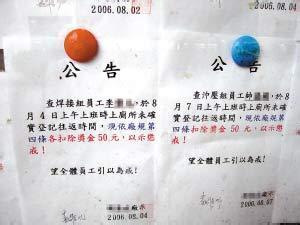 2006.08.02
公告
查焊接組員工李
，於8
月4日上午上班時上廁所未確
實登記往返時間，現依廠規第
四條各扣除獎金50元，以示懲
戒！
望全體員工以為戒！
廠示
2006.08.04
公告
查沖壓組員工師
，於8
月7日上午上班時上廁所未確
實登記往返時間，現依廠規第
四條扣除獎金50元，以示懲
戒！
望全體員工引以為戒！
廠示
2006.08.07